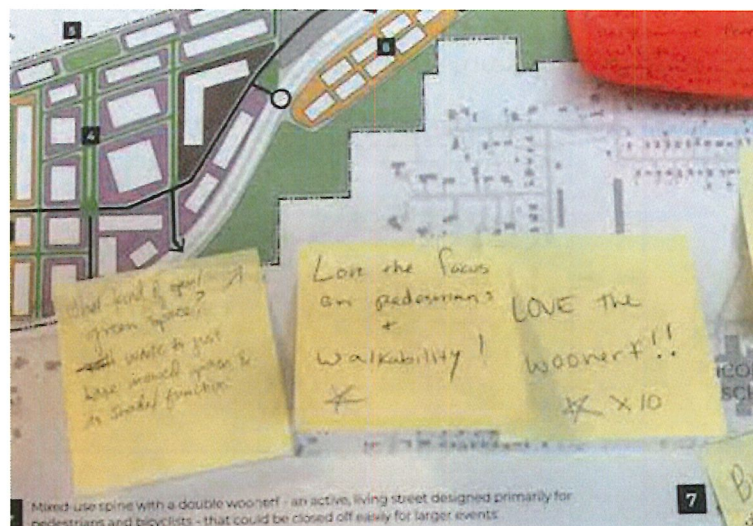 5
6
4
What kind of open/
green space?
waste to just
have mowed grass &
no shade/function
Love the focus
on pedestrians
+
walkability!
LOVE the
woonerf!!
X 10
7
Mixed-use spine with a double woonerf - an active, living street designed primarily for
pedestrians and bicyclists - that could be closed off easily for larger events